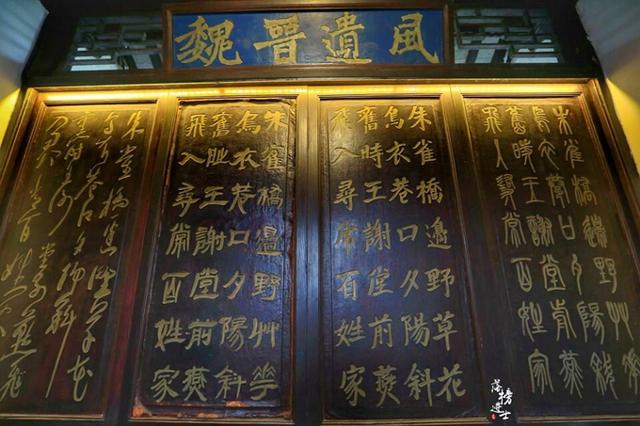 魏晉遺風
朱雀橋邊野艸
烏衣巷口夕陽斜
舊時王謝堂前燕
飛入尋常百姓家
朱雀橋邊野草花
烏衣巷口夕陽斜
舊時王謝堂前燕
飛入尋常百姓家
朱雀橋邊野艸華
烏衣巷口夕陽斜
舊時王謝堂前燕
飛入尋常百姓家
朱雀橋邊野草花
烏衣巷口夕陽斜
落榜進士